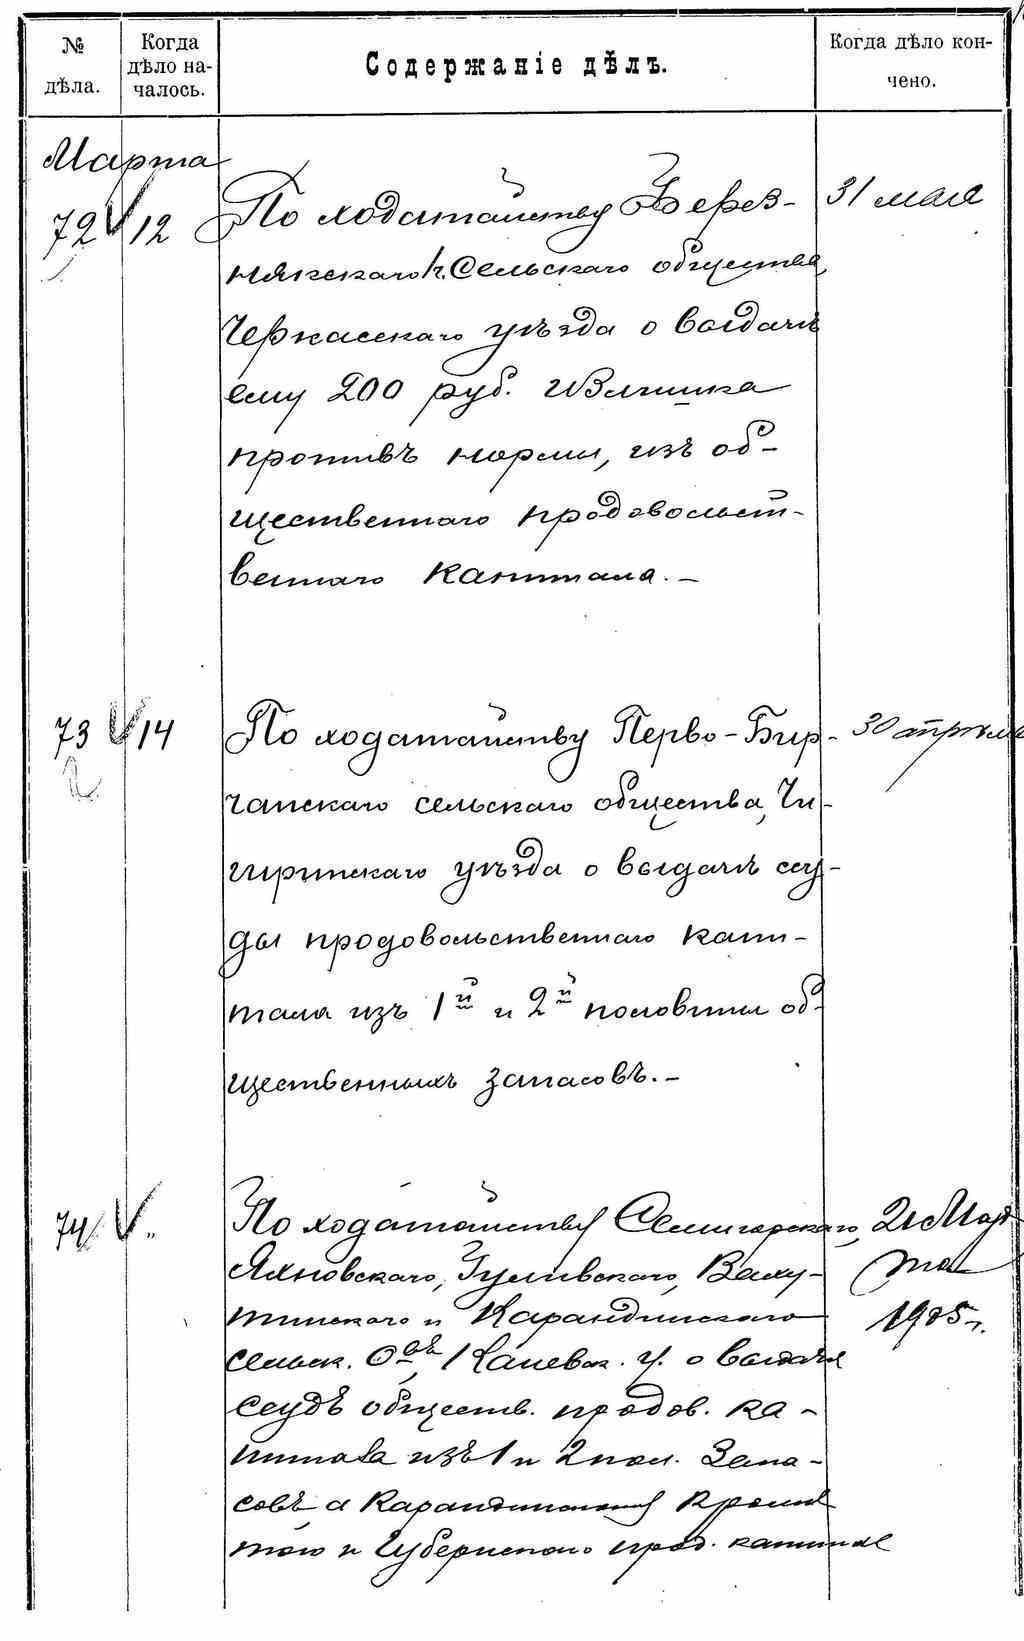 № дѣла.
Когда дѣло началось.
Содержаніе дѣлъ.
Когда дѣло кончено.
Марта
72 12 По ходатайству Берез- 31 мая
някскаго сельскаго общества,
Черкасскаго уѣзда о выдачѣ
ему 200 руб. излишка
противъ нормы, изъ об-
щественнаго продовольст-
веннаго капитала. –
73 14 По ходатайству Перво-Бир- 30 апрѣля
2
чанскаго сельскаго общества, Чи-
гиринскаго уѣзда о выдачѣ ссу-
ды продовольственнаго капи-
тала изъ 1й и 2й половины об-
щественныхъ запасовъ. –
74 „ По ходатайству Семигорскаго, 21 Мар-
Яхновскаго, Гуливскаго, Ваху- та
тинскаго и Карандинскаго 1905 г.
сельск. О-въ, Каневск. у. о выдачѣ
ссудъ обществ. продов. ка-
питала изъ 1 и 2 пол. запа-
совъ, а Карандинскому кромѣ
того и Губернскаго прод. капитала